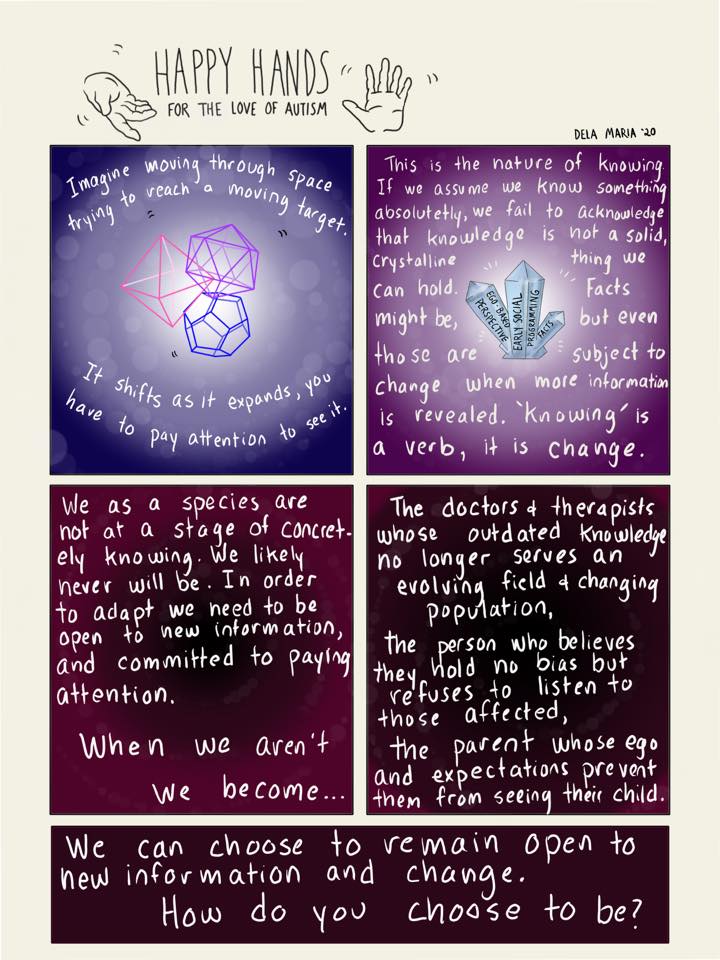 HAPPY HANDS
FOR THE LOVE OF AUTISM
DELA MARIA '20
Imagine moving through space
trying to reach a moving target.
It shifts as it expands, you
have to pay attention to see it.
This is the nature of knowing.
If we assume we know something
absolutetly, we fail to acknowledge
that knowledge is not a solid,
crystalline thing we
can hold. Facts
might be, but even
those are subject to
change when more information
is revealed. 'Knowing' is
a verb, it is change.
EGO-BASED
PERSPECTIVE
EARLY SOCIAL
PROGRAMMING
FACTS
We as a species are
not at a stage of concret-
ely knowing. We likely
never will be. In order
to adapt we need to be
open to new information,
and committed to paying
attention.
When we aren't
we become...
The doctors & therapists
whose outdated knowledge
no longer serves an
evolving field & changing
population,
the person who believes
they hold no bias but
refuses to listen to
those affected,
the parent whose ego
and expectations prevent
them from seeing their child.
We can choose to remain open to
new information and change.
How do you choose to be?